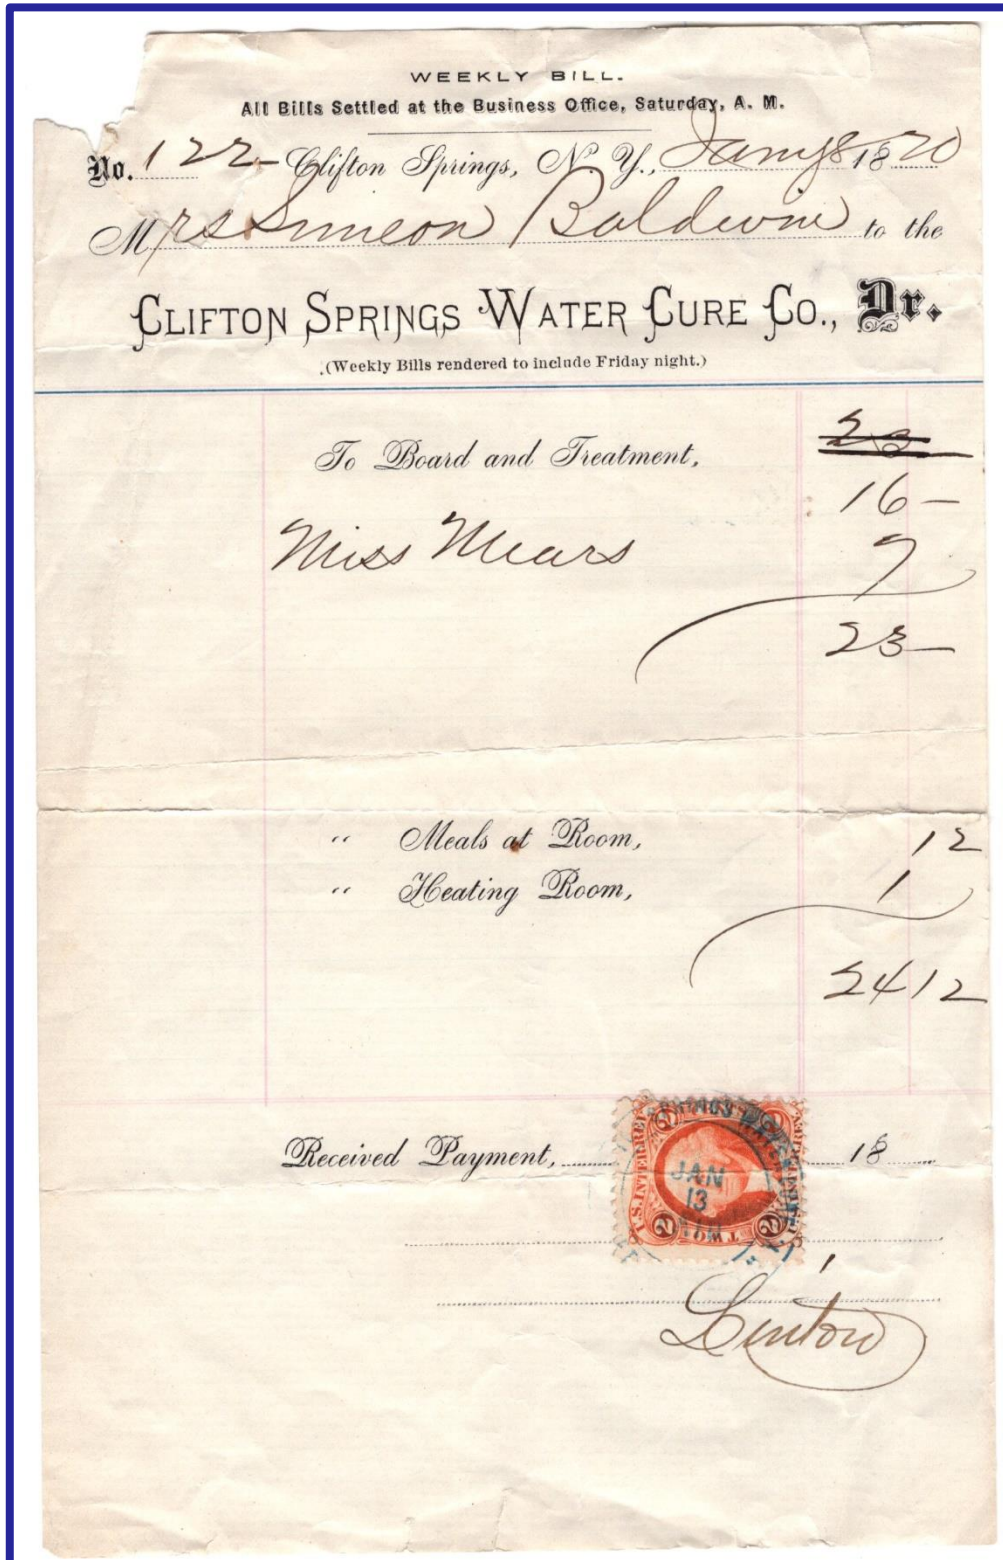 WEEKLY BILL.
All Bills Settled at the Business Office, Saturday, A. M.
No. 122 Clifton Springs, N. Y., Jany 8 1870
Mrs Simeon Baldwin to the
CLIFTON SPRINGS WATER CURE CO., Dr.
(Weekly Bills rendered to include Friday night.)
23
To Board and Treatment,
16 —
Miss Mears 7
23 —
" Meals at Room, 12
" Heating Room, 1
24 12
Received Payment, 18
U.S. INTER. REV.
JAN
13
TWO
2 2
Linton